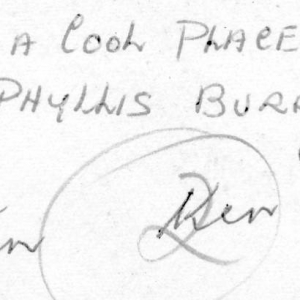 A COOL PLACE
PHYLLIS BURR
Ken
2